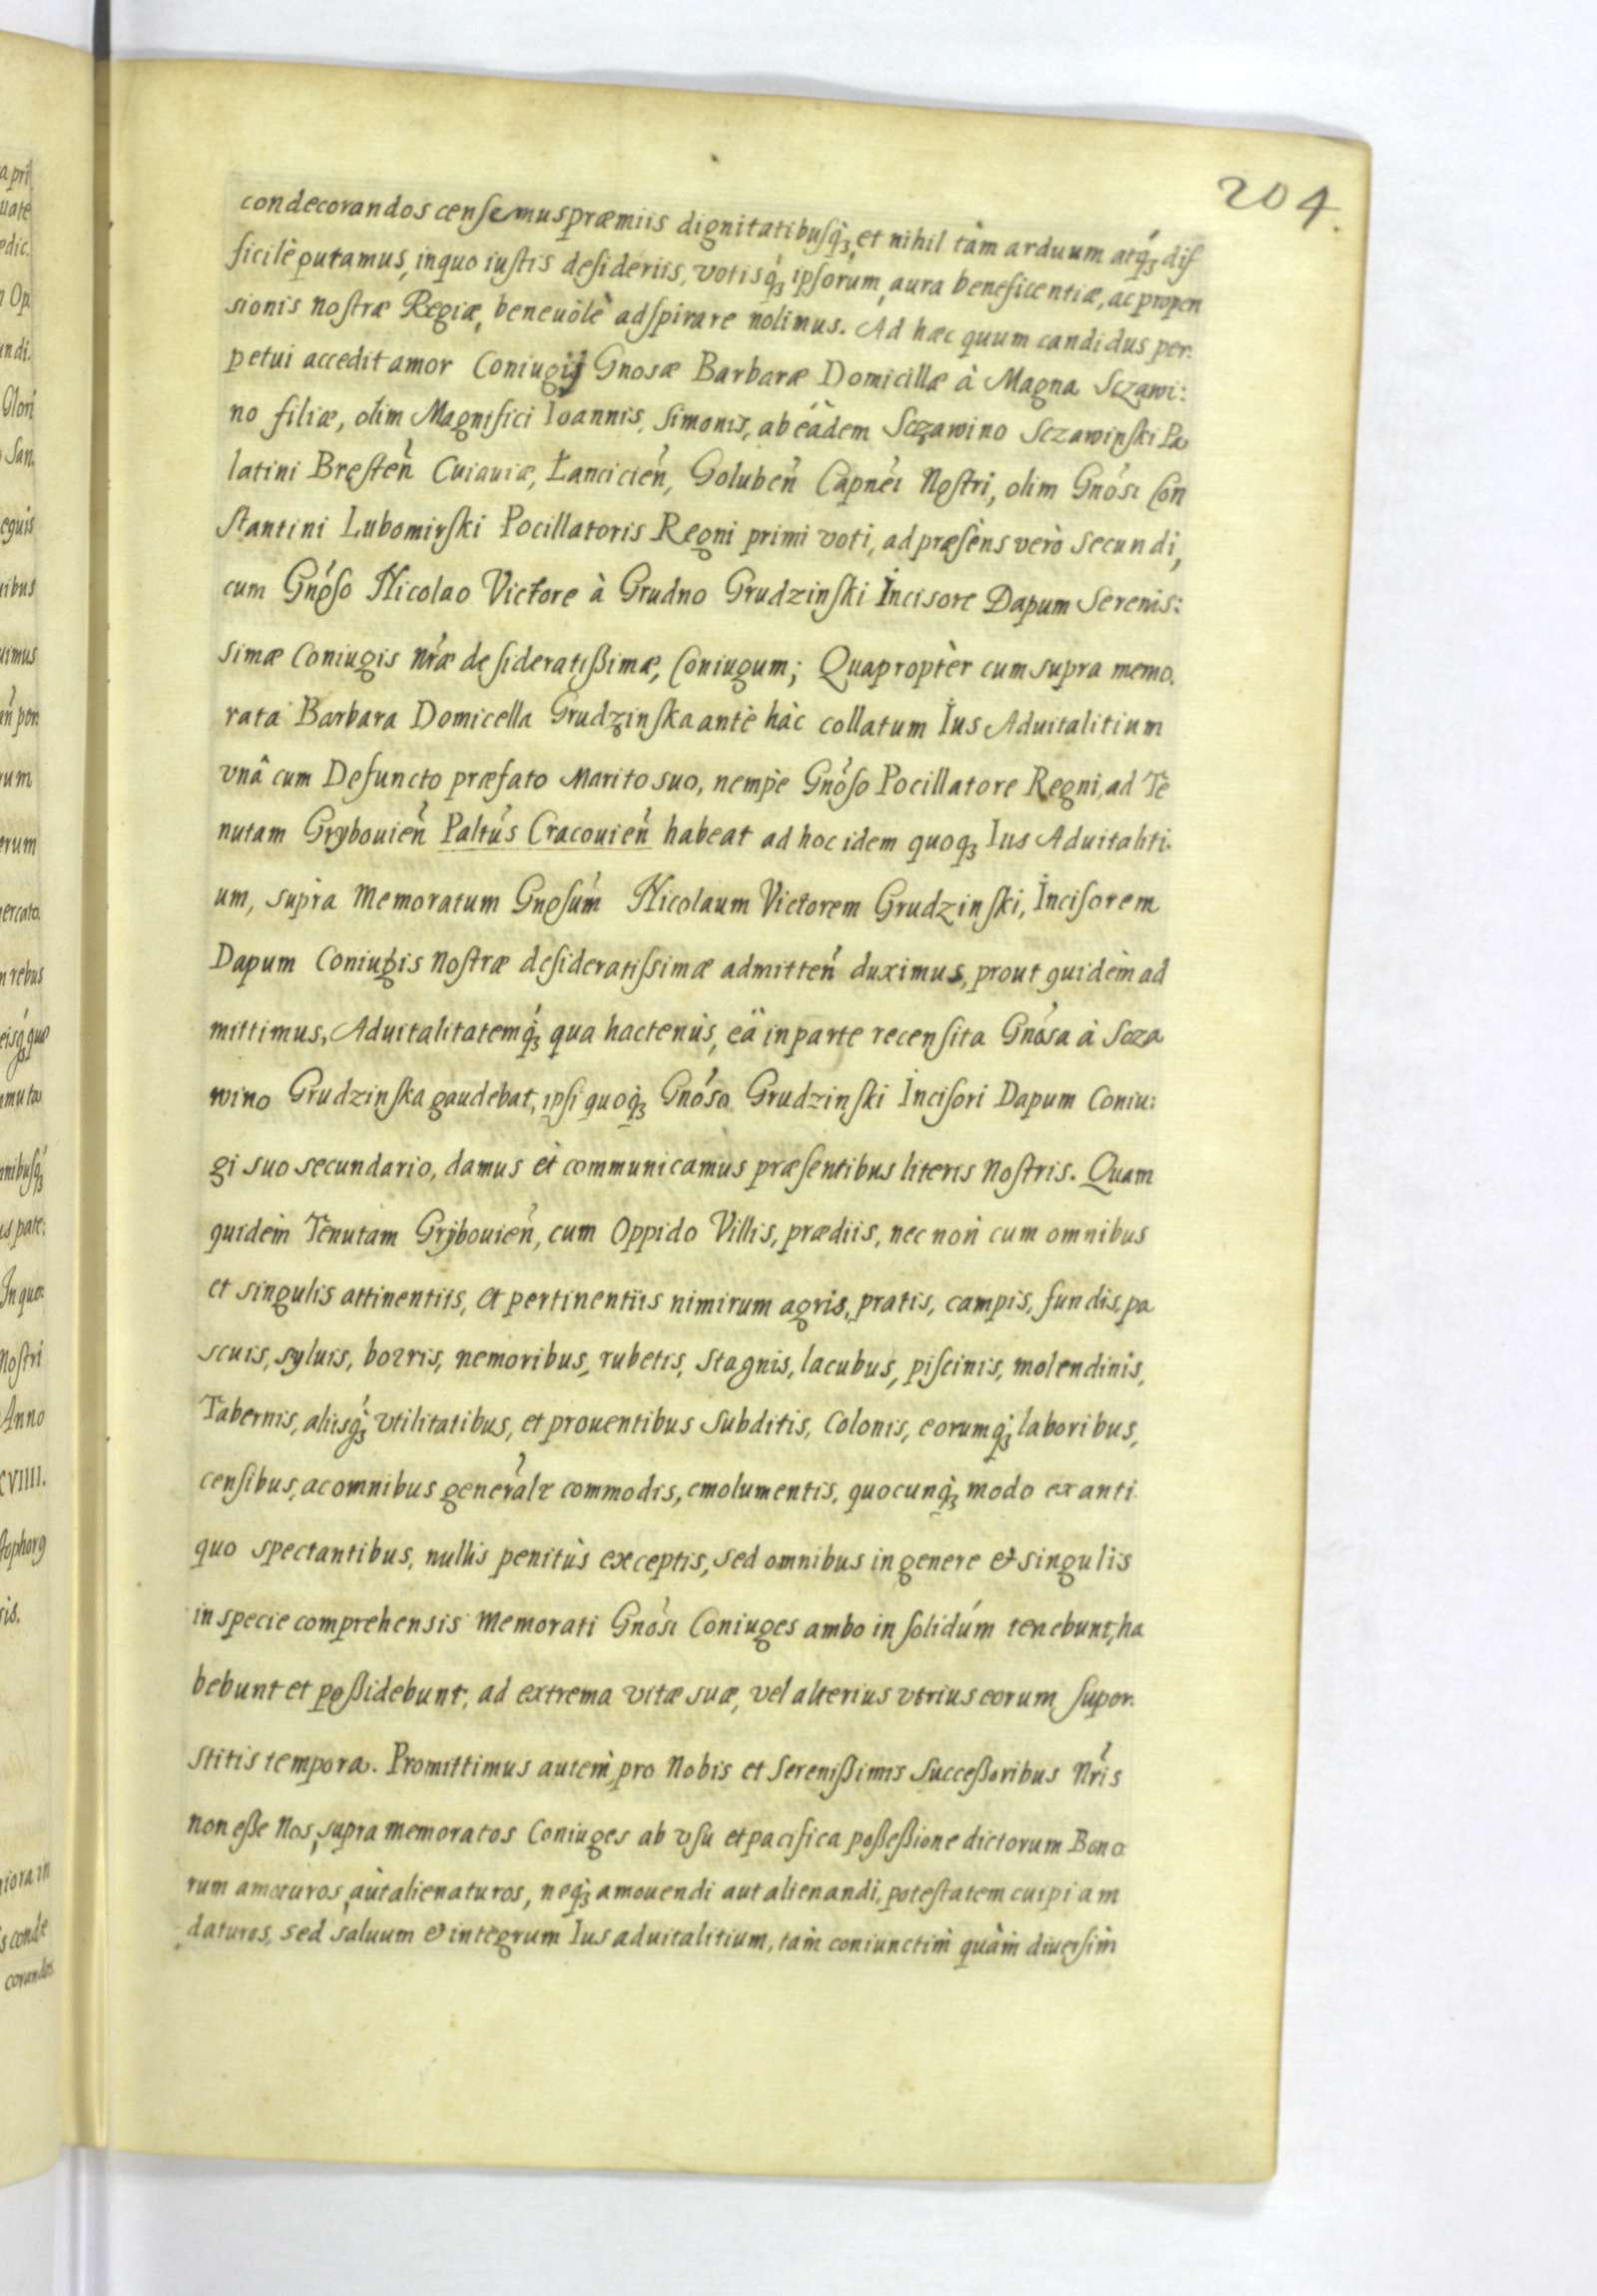 204.
condecorandos censemus præmiis dignitatibusq₃, et nihil tàm arduum atq₃ dif
ficilè putamus, in quo iustis desideriis, votisq₃ ipsorum, aura beneficentiæ, ac propen
sionis nostræ Regiæ, beneuolè adspirare nolimus. Ad hæc quum candidus per:
petui accedit amor Coniugij Gnosæ Barbaræ Domicillæ à Magna Sczawi:
no filiæ, olim Magnifici Ioannis, Simonis, ab eâdem Sczawino Sczawinski Pa
latini Bresten̄ Cuiauiæ, Łancicien̄, Goluben̄ Capnei Nostri, olim Gnosi Con
stantini Lubomirski Pocillatoris Regni primi voti, ad præsèns verò secundi,
cum Gnoso Nicolao Victore à Grudno Grudzinski Incisore Dapum Serenis:
simæ Coniugis nræ desideratißimæ, Coniugum; Quapropter cum supra memo.
rata Barbara Domicella Grudzinska antè hàc collatum Ius Aduitalitium
vnâ cum Defuncto præfato Marito suo, nempè Gnoso Pocillatore Regni, ad Te
nutam Grybouien̄ Paltus Cracouien̄ habeat ad hoc idem quoq₃ Ius Aduitaliti.
um, supra memoratum Gnosum Nicolaum Victorem Grudzinski, Incisorem
Dapum Coniugis nostræ desideratissimæ admitten̄ duximus, prout quidem ad
mittimus, Aduitalitatemq₃ qua hactenùs, eä in parte recensita Gnosa à Scza
wino Grudzinska gaudebat, ipsi quoq₃ Gnoso Grudzinski Incisori Dapum Coniu:
gi suo secundario, damus et communicamus præsentibus literis nostris. Quam
quidem Tenutam Grÿbouien̄, cum Oppido Villis, prædiis, nec non cum omnibus
et singulis attinentiis, et pertinentiis nimirum agris, pratis, campis, fundis, pa
scuis, syluis, borris, nemoribus, rubetis, stagnis, lacubus, piscinis, molendinis,
Tabernis, aliisq₃ vtilitatibus, et prouentibus subditis, Colonis, eorumq₃ laboribus,
censibus, ac omnibus generalr commodis, emolumentis, quocunq₃ modo ex anti
quo spectantibus, nullis penitùs exceptis, sed omnibus in genere & singulis
in specie comprehensis memorati Gnosi Coniuges ambo in solidum tenebunt, ha
bebunt et poßidebunt, ad extrema vitæ suæ, vel alterius vtrius eorum super.
stitis tempora. Promittimus autem pro nobis et Serenißimis Succeßoribus Nris
non eße nos, supra memoratos Coniuges ab vsu et pacifica poßeßione dictorum Bono
rum amoturos, aùt alienaturos, neq₃ amouendi aut alienandi, potestatem cuipiam
daturos, sed saluum & integrum Ius aduitalitium, tàm coniunctim quàm diuisim